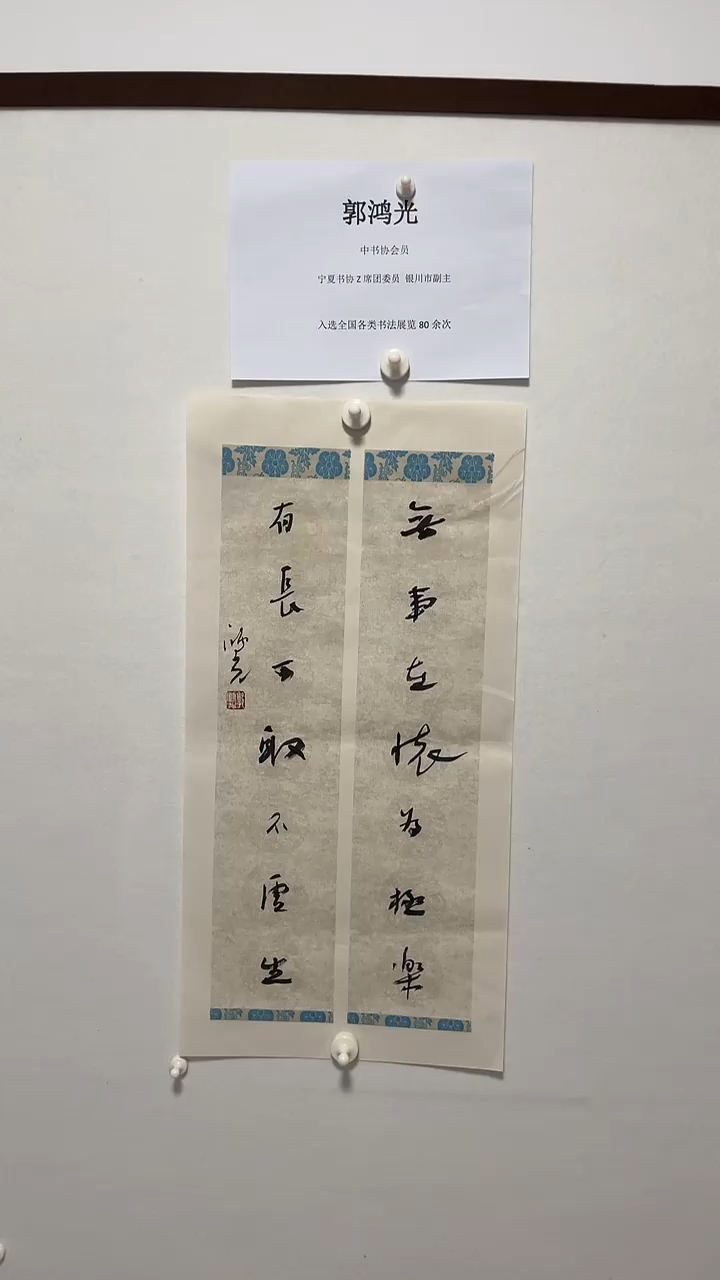 郭鸿光
中书协会员
宁夏书协Z席团委员 银川市副主
入选全国各类书法展览80余次
無事在懷為極樂
有長可取不虛生
鴻光